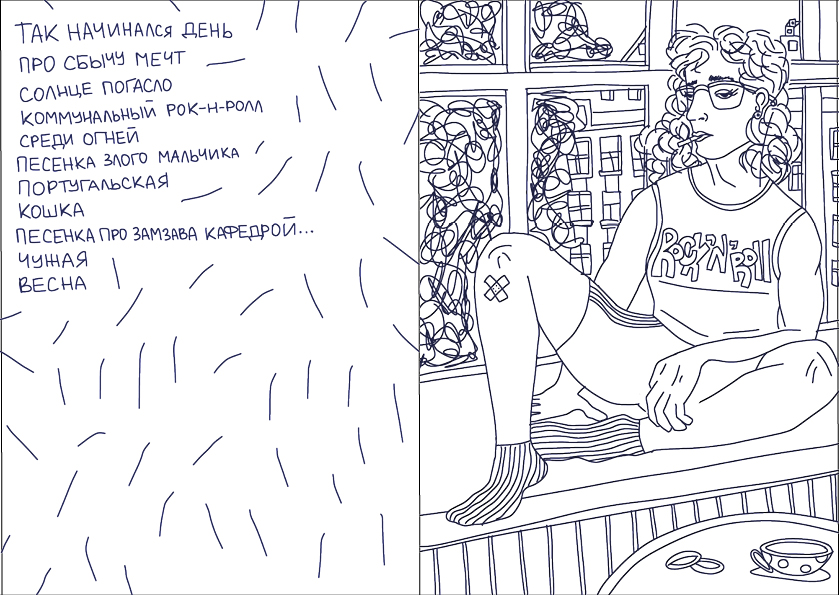 ТАК НАЧИНАЛСЯ ДЕНЬ
ПРО СБЫЧУ МЕЧТ
СОЛНЦЕ ПОГАСЛО
КОММУНАЛЬНЫЙ РОК-Н-РОЛЛ
СРЕДИ ОГНЕЙ
ПЕСЕНКА ЗЛОГО МАЛЬЧИКА
ПОРТУГАЛЬСКАЯ
КОШКА
ПЕСЕНКА ПРО ЗАМЗАВА КАФЕДРОЙ...
ЧУЖАЯ
ВЕСНА
ROCK'N'ROLL